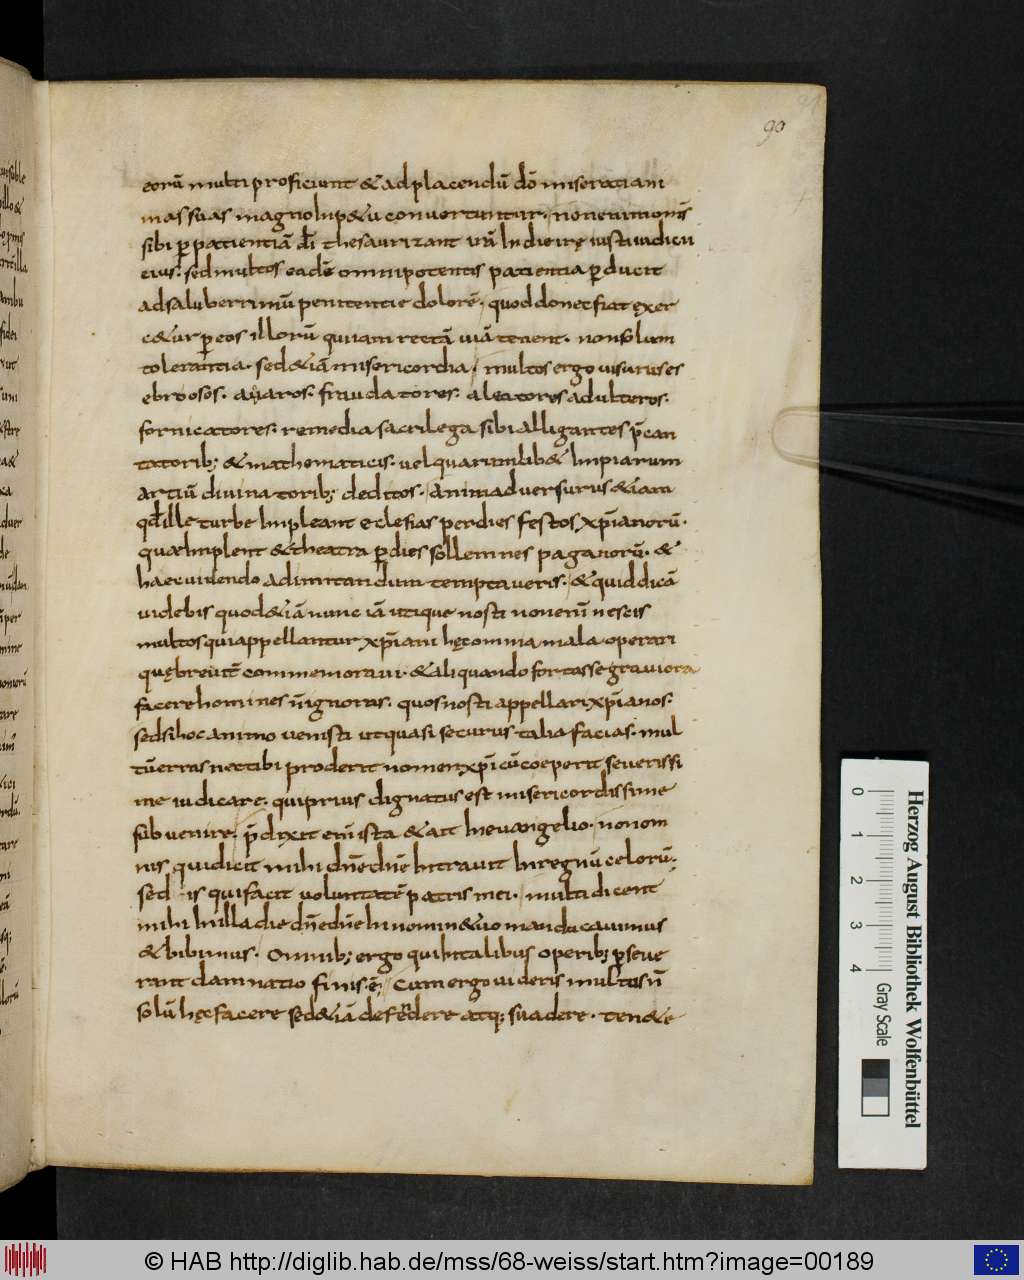 90
eorū multi proficiunt & ad placendū dō miserati ani
mas suas magno Imp&u convertuntur. non enim omīs
sibi ꝑ patientiā dī thesaurizant irā In die irę iusti iudicii
eius. sed multos eadē omnipotentis patientia ꝑducit
ad saluberrimū penitentie dolorē. quod donec fiat exer
c&ur ꝑ eos illorū qui iam rectā uiā tenent. non solum
tolerantia. sed &iā misericordia. multos ergo uisurus es
ebriosos. auaros. fraudatores. aleatores adulteros.
fornicatores. remedia sacrilega sibi alligantes p̄can
tatorib; & mathematicis. uel quarumlib& Impiarum
artiū diuinatorib; deditos. animaduersurus &iam
qđ ille turbe Impleant ęclesias per dies festos xp̄ianorū.
quae Implent & theatra ꝑ dies sollemnes paganorū. &
haec uidendo ad imitandum temptaueris. & quid dicā
uidebis quod &iā nunc iā utique nosti non enī nescis
multos qui appellantur xp̄iani hęc omnia mala operari
quę breuit̄ commemoraui. & aliquando fortasse grauiora
facere homines n̄ ignoras. quos nosti appellari xp̄ianos.
sed si hoc animo uenisti ut quasi securus talia facias. mul
tū erras nec tibi proderit nomen xp̄i cū coeperit seuerissi
me iudicare. qui prius dignatus est misericordissime
subuenire. p̄dixit enī ista & ait In euangelio. non om
nis qui dicit mihi dn̄e dn̄e Intrauit In regnū celorū;
sed is qui facit uoluntatē patris mei. multi dicent
mihi In illa die dn̄e dn̄e In nomin& uo manducauimus
& bibimus. Omnib; ergo qui In talibus operib; ꝑseue
rant damnatio finis ē. Cum ergo uideris multus n̄
solū hęc facere sed &iā defendere atq; suadere. ten& e
0 1 2 3 4
Gray Scale
Herzog August Bibliothek Wolfenbüttel
© HAB http://diglib.hab.de/mss/68-weiss/start.htm?image=00189